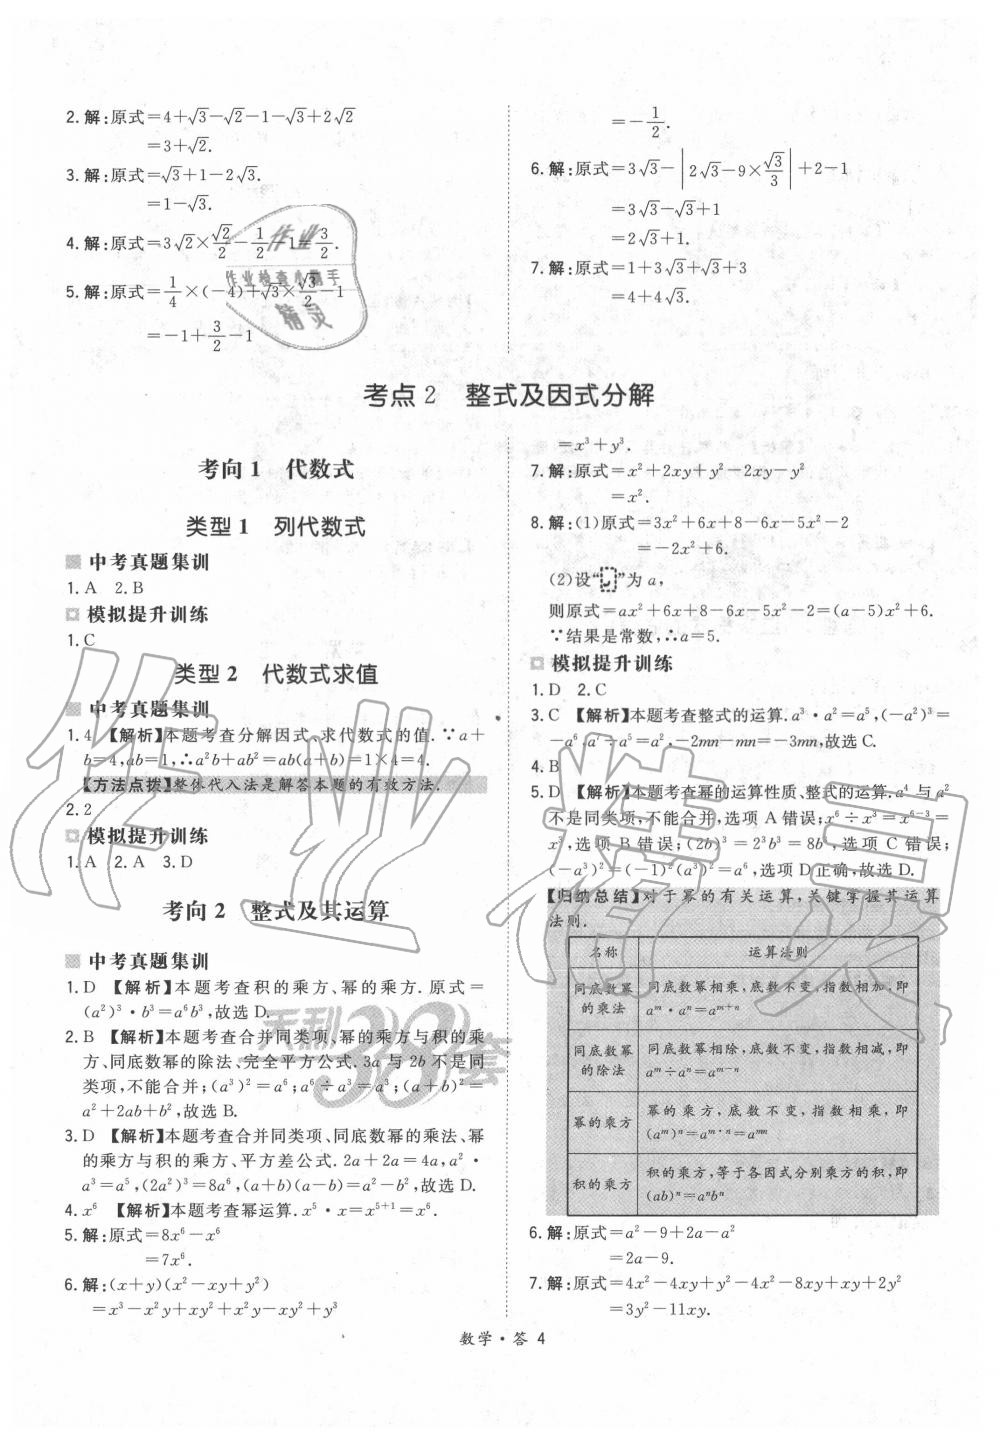 2.解:原式=4+√3-√2-1-√3+2√2
=3+√2.
3.解:原式=√3+1-2√3.
=1-√3.
4.解:原式=3√2×√2/2-1/2-1=3/2.
5.解:原式=1/4×(-4)+√3×√3/2-1
=-1+3/2-1
=-1/2.
6.解:原式=3√3-|2√3-9×√3/3|+2-1
=3√3-√3+1
=2√3+1.
7.解:原式=1+3√3+√3+3
=4+4√3.
考点2 整式及因式分解
考向1 代数式
类型1 列代数式
中考真题集训
1.A 2.B
模拟提升训练
1.C
类型2 代数式求值
中考真题集训
1.4 【解析】本题考查分解因式、求代数式的值.∵a+
b=4,ab=1,∴a²b+ab²=ab(a+b)=1×4=4.
【方法点拨】整体代入法是解答本题的有效方法.
2.2
模拟提升训练
1.A 2.A 3.D
考向2 整式及其运算
中考真题集训
1.D 【解析】本题考查积的乘方、幂的乘方.原式=
(a²)³·b³=a⁶b³,故选D.
2.B 【解析】本题考查合并同类项、幂的乘方与积的乘
方、同底数幂的除法、完全平方公式.3a与2b不是同
类项,不能合并;(a³)²=a⁶;a⁶÷a³=a³;(a+b)²=
a²+2ab+b²,故选B.
3.D 【解析】本题考查合并同类项、同底数幂的乘法、幂
的乘方与积的乘方、平方差公式.2a+2a=4a,a²·
a³=a⁵,(2a²)³=8a⁶,(a+b)(a-b)=a²-b²,故选D.
4.x⁶ 【解析】本题考查幂运算.x⁵·x=x⁵⁺¹=x⁶.
5.解:原式=8x⁶-x⁶
=7x⁶.
6.解:(x+y)(x²-xy+y²)
=x³-x²y+xy²+x²y-xy²+y³
=x³+y³.
7.解:原式=x²+2xy+y²-2xy-y²
=x².
8.解:(1)原式=3x²+6x+8-6x-5x²-2
=-2x²+6.
(2)设“ ”为a,
则原式=ax²+6x+8-6x-5x²-2=(a-5)x²+6.
∵结果是常数,∴a=5.
模拟提升训练
1.D 2.C
3.C 【解析】本题考查整式的运算.a³·a²=a⁵,(-a²)³=
-a⁶,a⁷÷a⁵=a²,-2mn-mn=-3mn,故选C.
4.B
5.D 【解析】本题考查幂的运算性质、整式的运算.a⁴与a²
不是同类项,不能合并,选项A错误;x⁶÷x³=x⁶⁻³=
x³,选项B错误;(2b)³=2³b³=8b³,选项C错误;
(-a³)²=(-1)²(a³)²=a⁶,选项D正确,故选D.
【归纳总结】对于幂的有关运算,关键掌握其运算
法则.
名称 运算法则
同底数幂的乘法 同底数幂相乘,底数不变,指数相加,即
aᵐ·aⁿ=aᵐ⁺ⁿ
同底数幂的除法 同底数幂相除,底数不变,指数相减,即
aᵐ÷aⁿ=aᵐ⁻ⁿ
幂的乘方 幂的乘方,底数不变,指数相乘,即
(aᵐ)ⁿ=aᵐ·ⁿ=aᵐⁿ
积的乘方 积的乘方,等于各因式分别乘方的积,即
(ab)ⁿ=aⁿbⁿ
6.解:原式=a²-9+2a-a²
=2a-9.
7.解:原式=4x²-4xy+y²-4x²-8xy+xy+2y²
=3y²-11xy.
数学·答 4
作业
作业检查小助手
精灵
作业精灵
天利38套